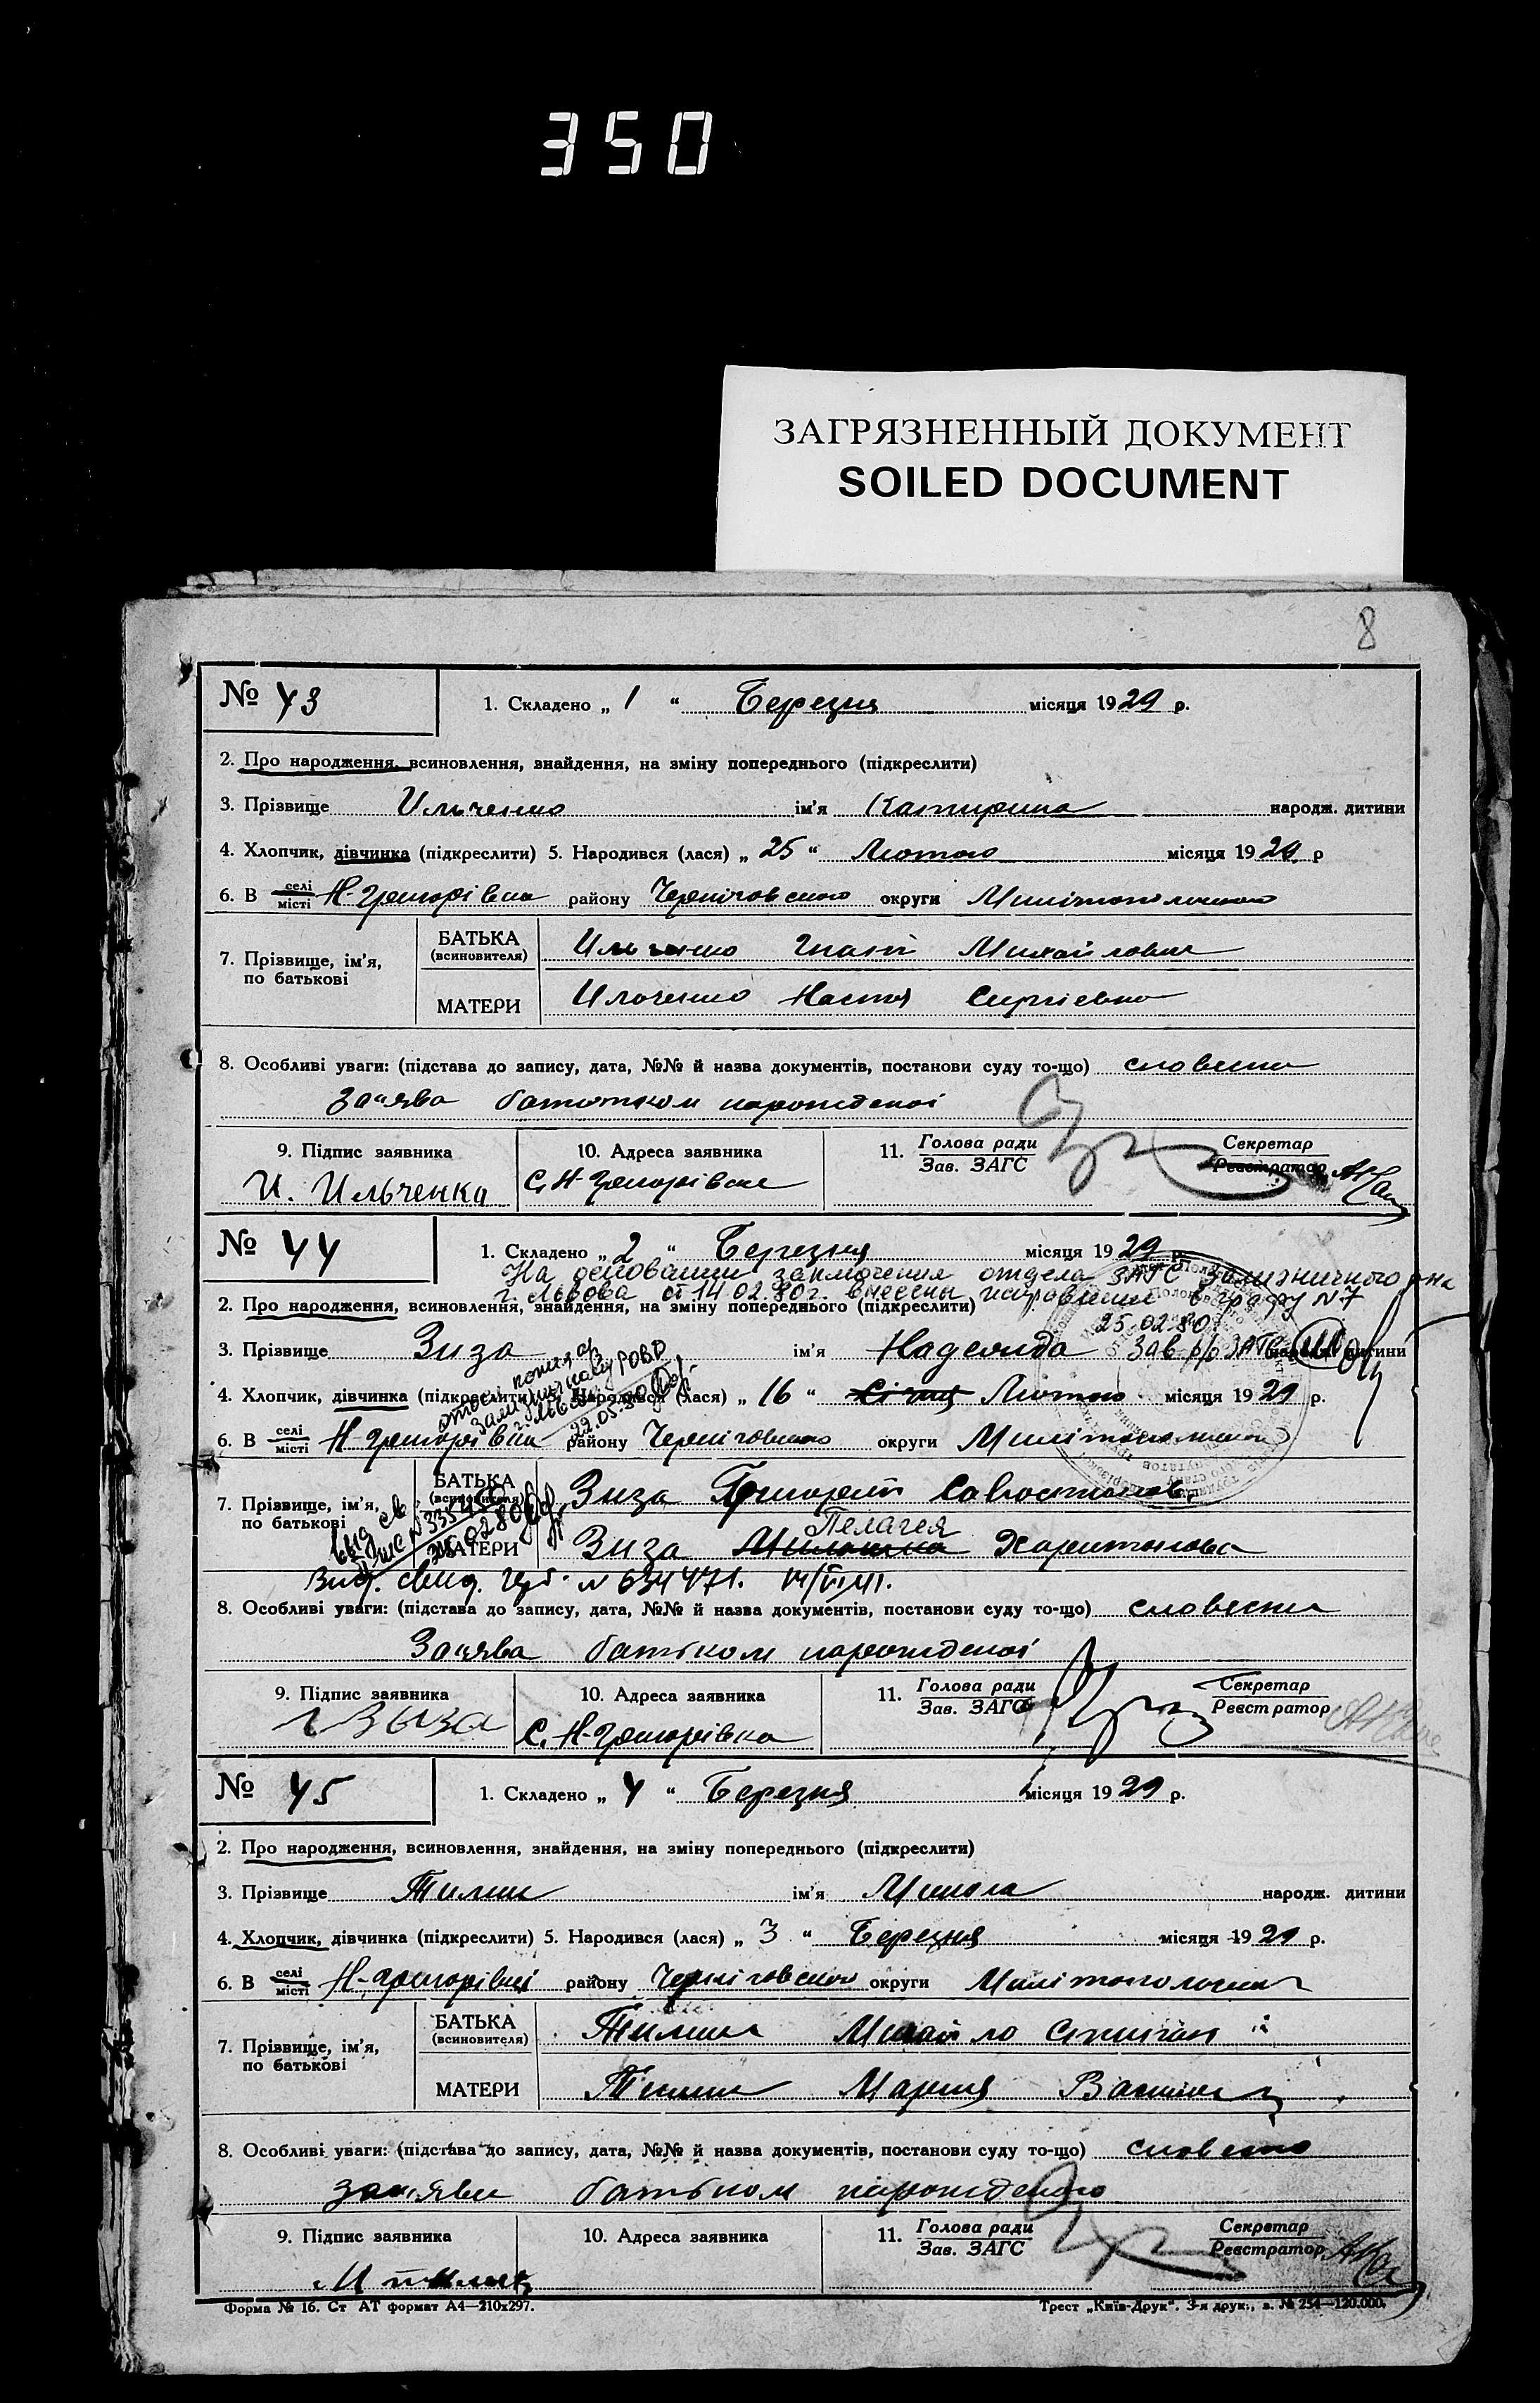 350
ЗАГРЯЗНЕННЫЙ ДОКУМЕНТ
SOILED DOCUMENT
8
№ 43 1. Складено „ 1 “ Березня місяця 1929 р.
2. Про народження, всиновлення, знайдення, на зміну попереднього (підкреслити)
3. Прізвище Ильченко ім'я Катирина народж. дитини
4. Хлопчик, дівчинка (підкреслити) 5. Народився (лася) „ 25 “ Лютого місяця 1929 р
6. В селі місті Н-Григорівка району Черніговського округи Милітопольської
7. Прізвище, ім'я, по батькові
БАТЬКА (всиновителя) Ильченко Гнат Михайлович
МАТЕРИ Ильченко Настя Сиргієвна
8. Особливі уваги: (підстава до запису, дата, №№ й назва документів, постанови суду то-що) словесна
заява батьком нарожденої
9. Підпис заявника 10. Адреса заявника 11. Голова ради Зав. ЗАГС Секретар Реєстратор
И. Ильченко С. Н-Григорівка
№ 44 1. Складено „ 2 “ Березня місяця 1929 р.
На основании заключения отдела ЗАГС Зализничного р-на
г. Львова от 14.02.80г. внесены исправления в графу №7
2. Про народження, всиновлення, знайдення, на зміну попереднього (підкреслити)
25.02.80
3. Прізвище Зиза ім'я Надежда Зав р/о ЗАГС народж. дитини
4. Хлопчик, дівчинка (підкреслити) 5. Народився (лася) „ 16 “ Січня Лютого місяця 1929 р.
22.05.80
6. В селі місті Н-Григорівка району Черніговського округи Милітопольської
7. Прізвище, ім'я, по батькові
БАТЬКА (всиновителя) Зиза Григорий Савостянов.
Пелагея
МАТЕРИ Зиза Харитоновна
Выд. св.
25.02.80
Выд. свид. № 634471. 14/VI 41.
8. Особливі уваги: (підстава до запису, дата, №№ й назва документів, постанови суду то-що) словесна
Заява батьком нарожденої
9. Підпис заявника 10. Адреса заявника 11. Голова ради Зав. ЗАГС Секретар Реєстратор
Г Зыза С. Н-Григорівка
№ 45 1. Складено „ 4 “ Березня місяця 1929 р.
2. Про народження, всиновлення, знайдення, на зміну попереднього (підкреслити)
3. Прізвище ім'я Микола народж. дитини
4. Хлопчик, дівчинка (підкреслити) 5. Народився (лася) „ 3 “ Березня місяця 1929 р.
6. В селі місті Н-Григорівці району Черніговського округи Милітопольська
7. Прізвище, ім'я, по батькові
БАТЬКА (всиновителя) Михайло
МАТЕРИ Мария
8. Особливі уваги: (підстава до запису, дата, №№ й назва документів, постанови суду то-що) словесна
заява батьком нарожденого
9. Підпис заявника 10. Адреса заявника 11. Голова ради Зав. ЗАГС Секретар Реєстратор
Форма № 16. Ст АТ формат А4—210х297. Трест „Київ-Друк“. 3-я друк., з. № 254—120.000.